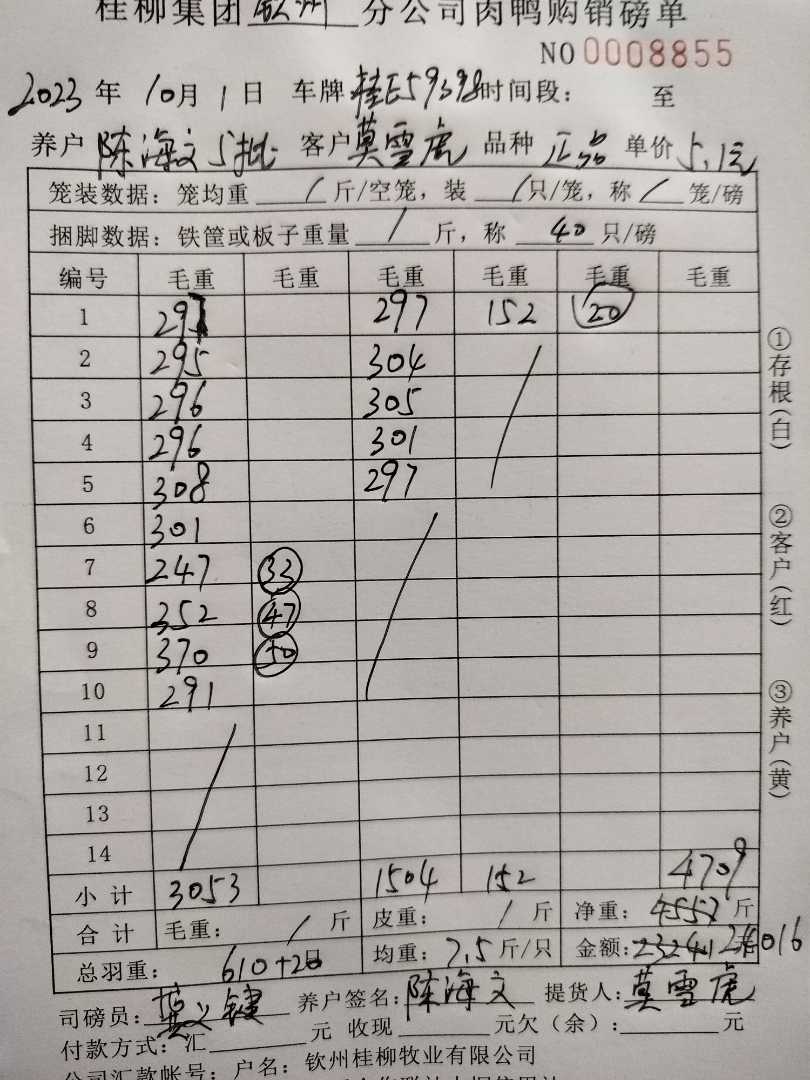 桂柳集团 钦州 分公司肉鸭购销磅单
NO 0008855
2023 年 10月 1 日 车牌 桂E59398 时间段: 至
养户 陈海文 5批 客户 莫雪虎 品种 正品 单价 5.1元
笼装数据: 笼均重 / 斤/空笼, 装 / 只/笼, 称 / 笼/磅
捆脚数据: 铁筐或板子重量 / 斤, 称 40 只/磅
编号 毛重 毛重 毛重 毛重 毛重 毛重
1 297 297 152 20
2 295 304
3 296 305
4 296 301
5 308 297
6 301
7 247 33
8 352 47
9 370 50
10 291
11
12
13
14
小计 3053 1504 152 4709
合计 毛重: / 斤 皮重: / 斤 净重: 斤
总羽重: 610+20 均重: 7.5 斤/只 金额: 23241 24016
司磅员: 养户签名: 陈海文 提货人: 莫雪虎
付款方式: 汇 元 收现 元欠(余): 元
公司汇款帐号: 户名: 钦州桂柳牧业有限公司
①存根(白)
②客户(红)
③养户(黄)